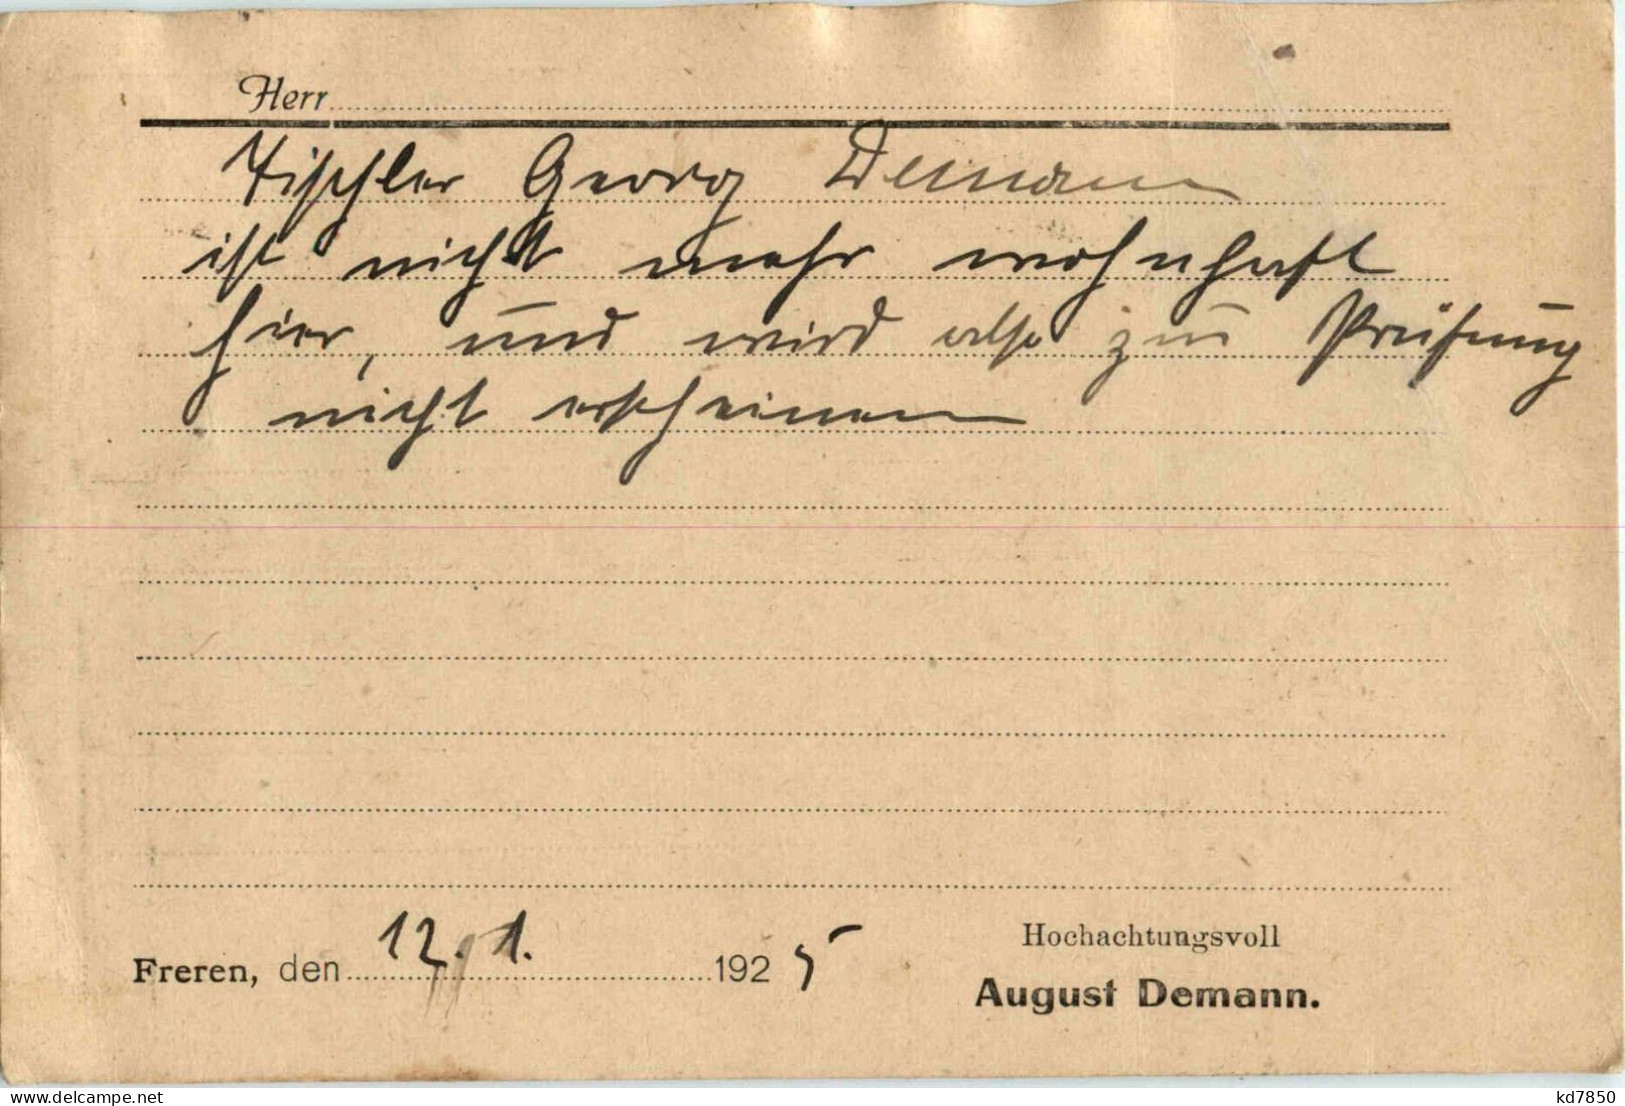 Herr
Tischler Georg Demann
ist nicht mehr wohnhaft
hier, und wird also zur Prüfung
nicht erscheinen
Freren, den 12. 1. 1925
Hochachtungsvoll
August Demann.
akpool.de
kd7850